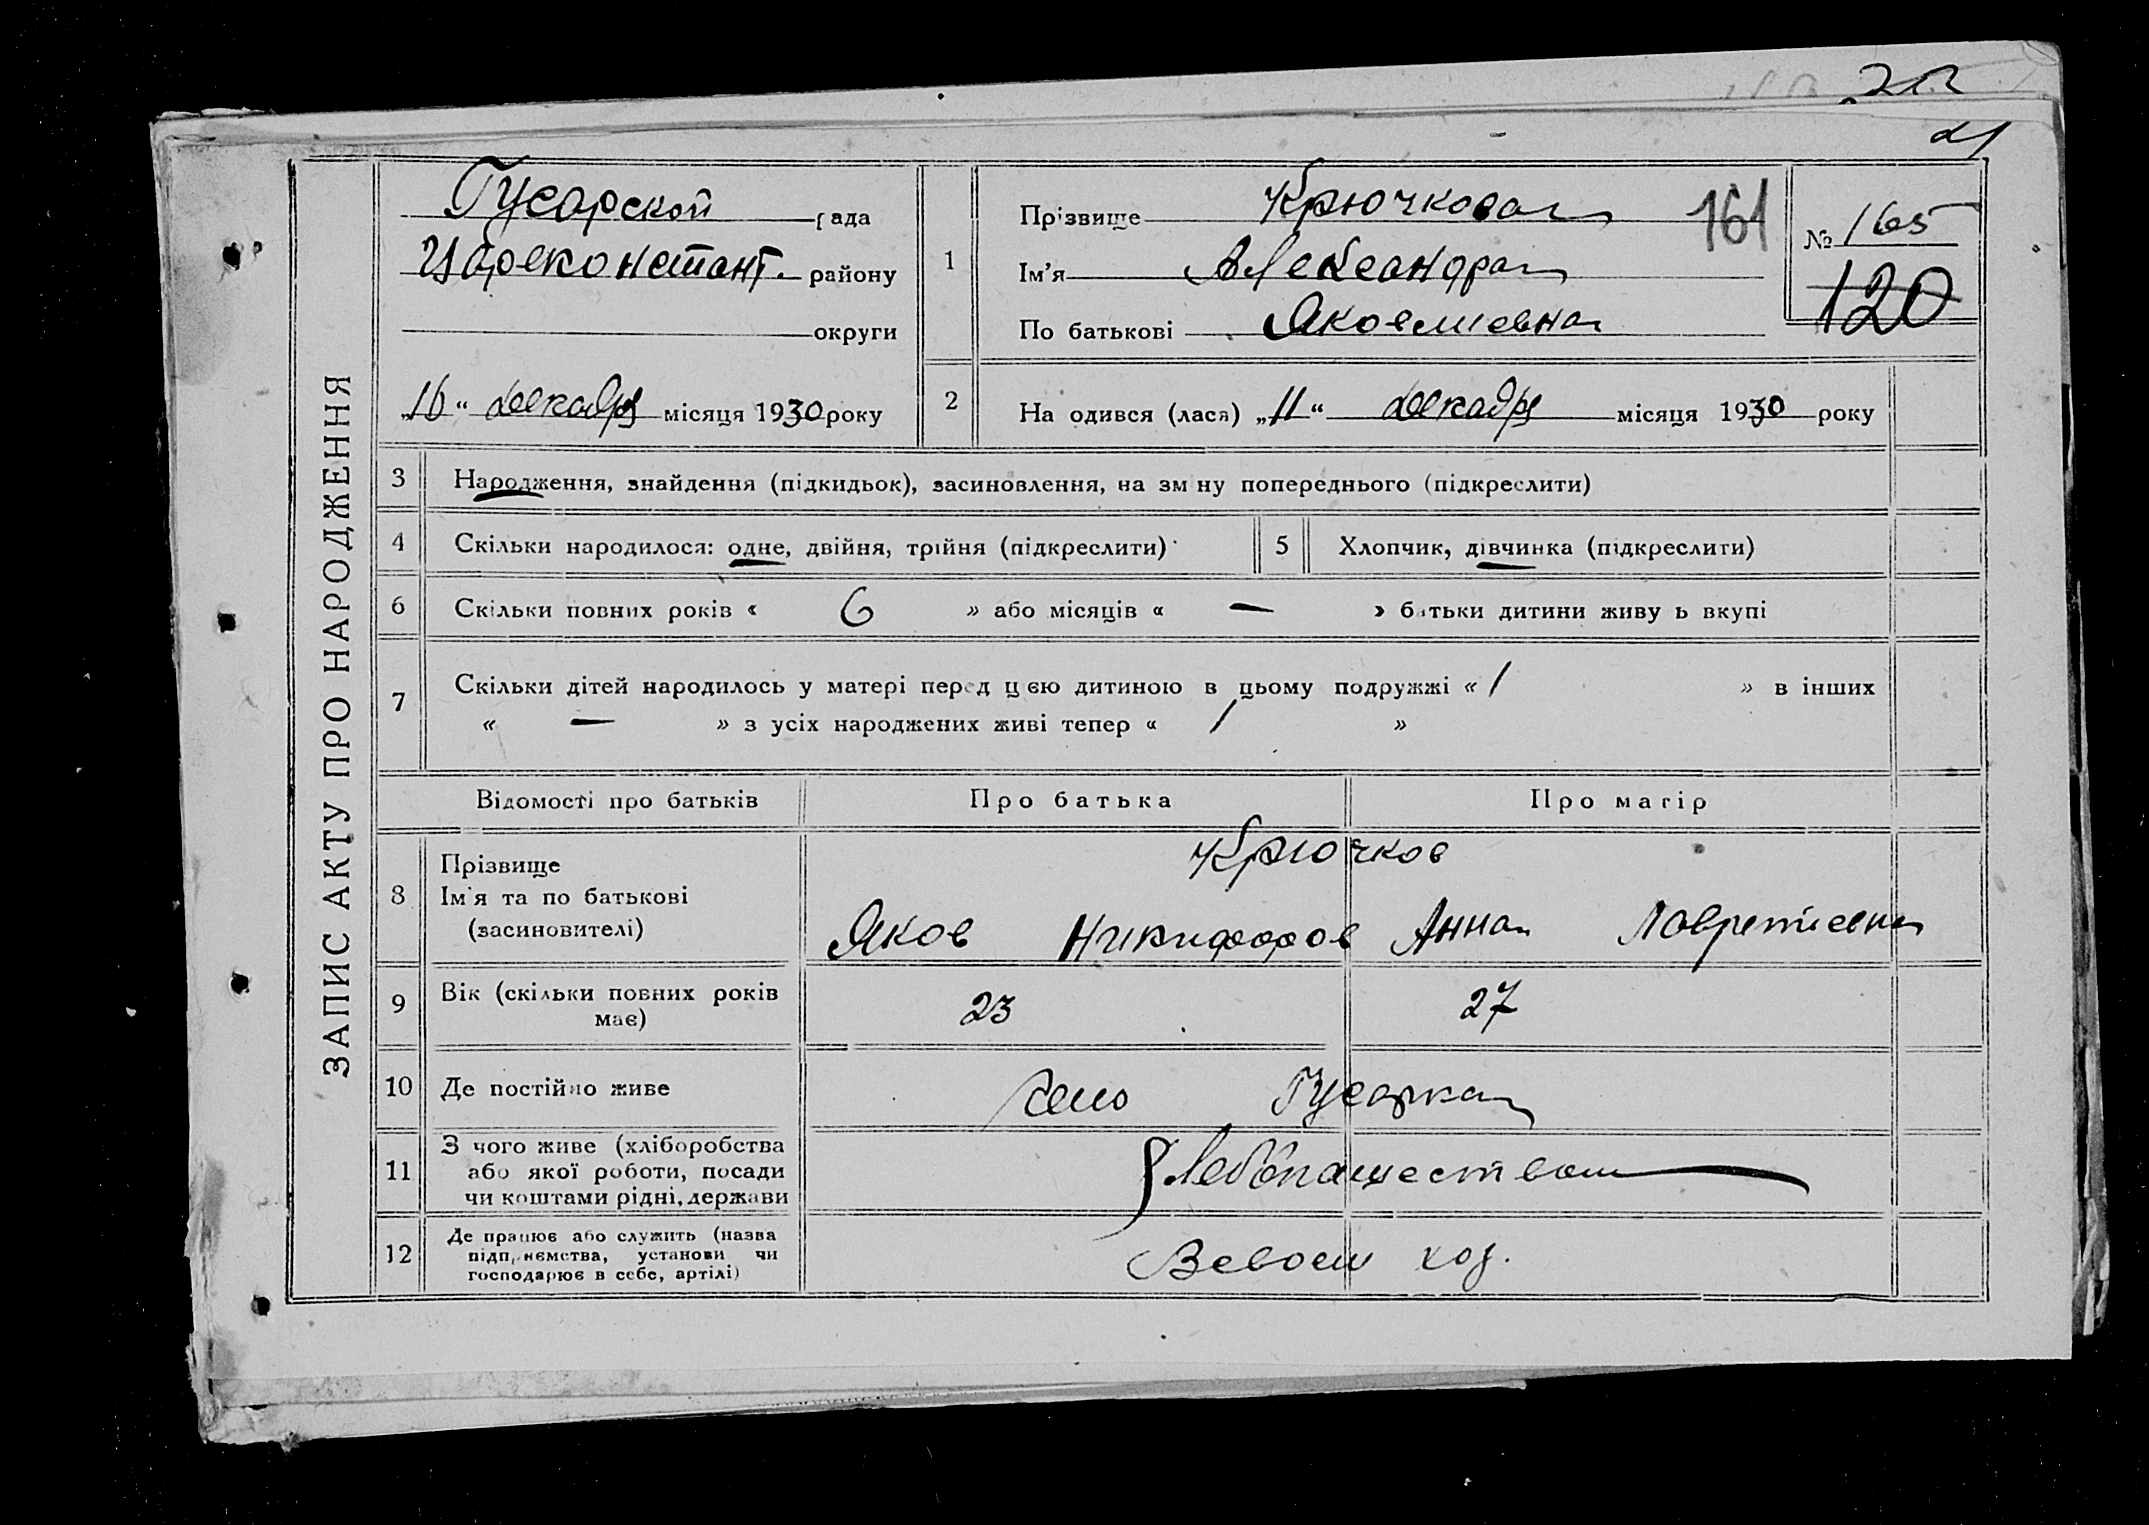 21
ЗАПИС АКТУ ПРО НАРОДЖЕННЯ
Гусарской рада
Цареконстант. району
округи
„16“ декабря місяця 1930 року
1
Прізвище Крючкова 161
Ім’я Александра
По батькові Яковлевна
№ 165
120
2 На одився (лася) „11“ декабря місяця 1930 року
3 Народження, знайдення (підкидьок), засиновлення, на зм ну попереднього (підкреслити)
4 Скільки народилося: одне, двійня, трійня (підкреслити) 5 Хлопчик, дівчинка (підкреслити)
6 Скільки повних років « 6 » або місяців « — » батьки дитини живу ь вкупі
7 Скільки дітей народилось у матері перед цією дитиною в цьому подружжі « 1 » в інших
« — » з усіх народжених живі тепер « 1 »
Відомості про батьків Про батька Про матір
8 Прізвище
Ім’я та по батькові
(засиновителі)
Крючков
Яков Никифоров Анна
9 Вік (скільки повних років
має)
23 27
10 Де постійно живе село Гусарка
11 З чого живе (хліборобства
або якої роботи, посади
чи коштами рідні, держави
Хлебопашеством
12 Де працює або служить (назва
підприємства, установи чи
господарює в себе, артілі)
В своем хоз.